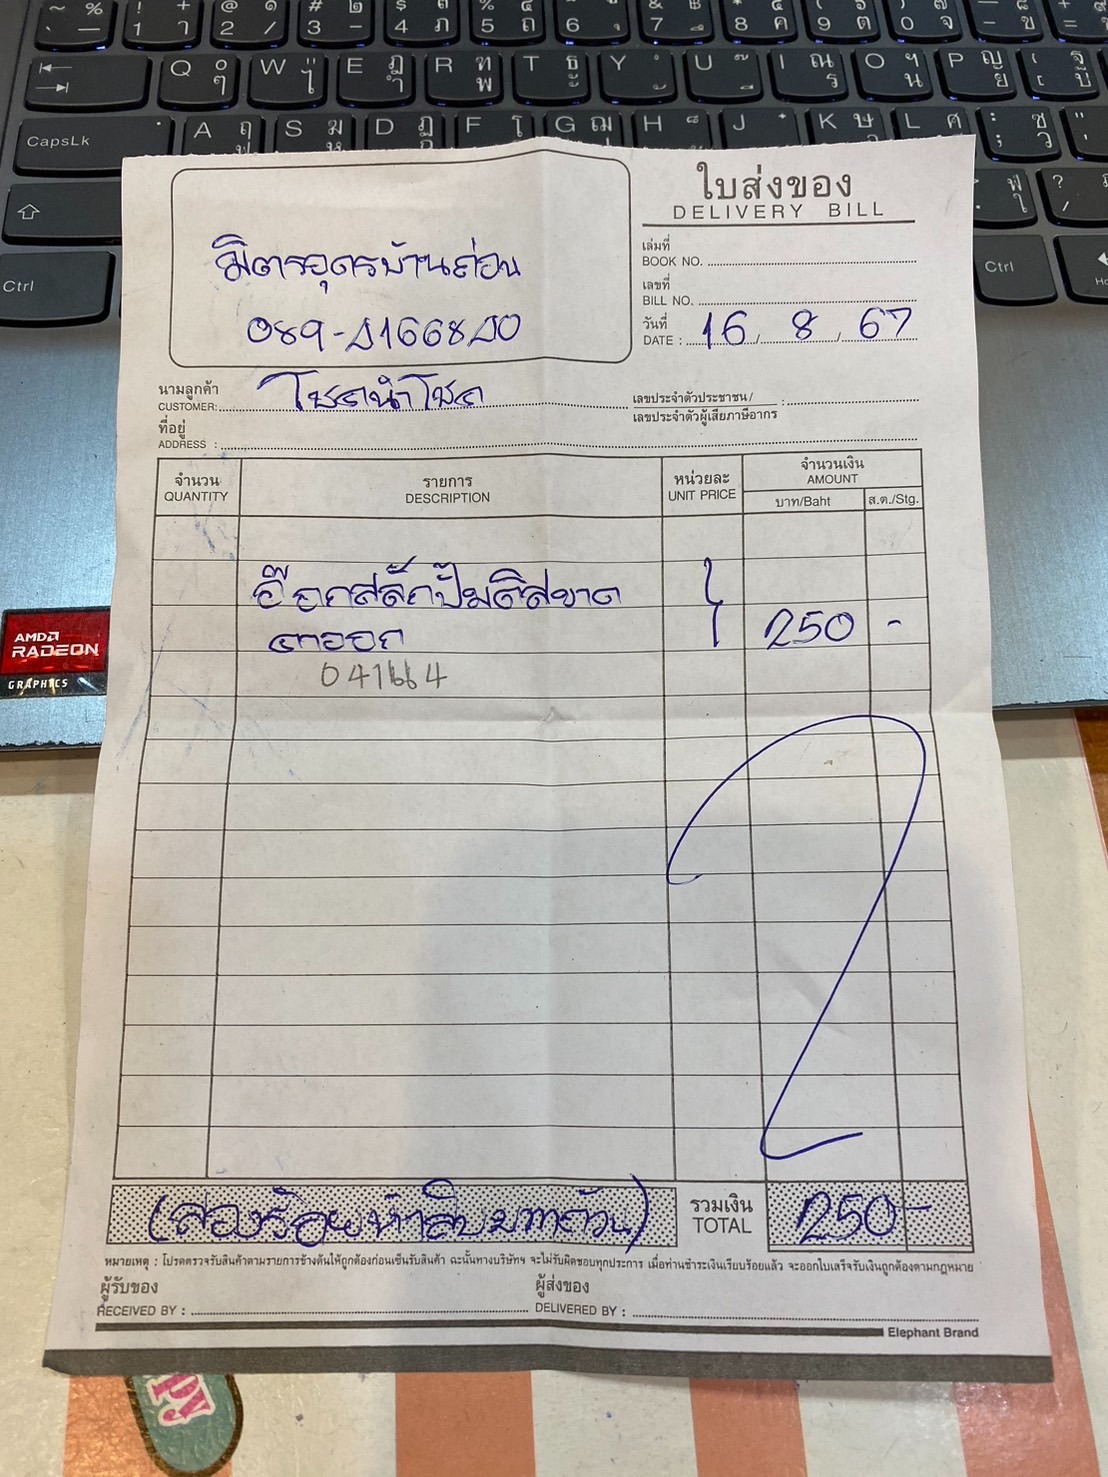 CapsLk
Ctrl
Ctrl
AMD
RADEON
GRAPHICS
มิตรอุดรบ้านถ่อน
ใบส่งของ
DELIVERY BILL
เล่มที่
BOOK NO.
เลขที่
BILL NO.
วันที่
DATE : 16 / 8 / 67
นามลูกค้า
CUSTOMER: โชคนำโชค
เลขประจำตัวประชาชน/
เลขประจำตัวผู้เสียภาษีอากร :
ที่อยู่
ADDRESS :
จำนวน
QUANTITY
รายการ
DESCRIPTION
หน่วยละ
UNIT PRICE
จำนวนเงิน
AMOUNT
บาท/Baht
ส.ต./Stg.
อ๊อกสลักปั๊มดิสขาด
250 -
(สองร้อยห้าสิบบาทถ้วน)
รวมเงิน
TOTAL
250-
หมายเหตุ : โปรดตรวจรับสินค้าตามรายการข้างต้นให้ถูกต้องก่อนเซ็นรับสินค้า ฉะนั้นทางบริษัทฯ จะไม่รับผิดชอบทุกประการ เมื่อท่านชำระเงินเรียบร้อยแล้ว จะออกใบเสร็จรับเงินถูกต้องตามกฎหมาย
ผู้รับของ
RECEIVED BY :
ผู้ส่งของ
DELIVERED BY :
Elephant Brand